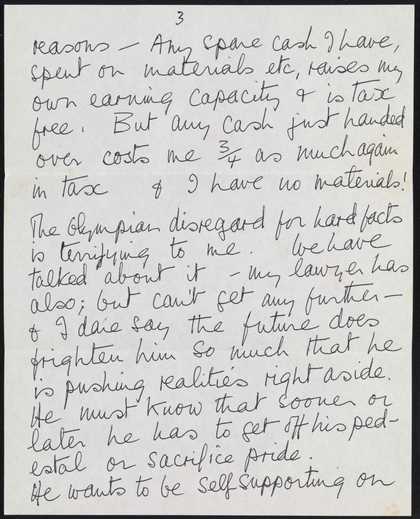 3
reasons — Any spare cash I have,
spent on materials etc, raises my
own earning capacity & is tax
free. But any cash just handed
over costs me 3/4 as much again
in tax & I have no materials!
The Olympian disregard for hard facts
is terrifying to me. We have
talked about it - my lawyer has
also; but can't get any further —
& I daie say the future does
frighten him so much that he
is pushing realities right aside.
He must know that sooner or
later he has to get off his ped-
estal or sacrifice pride.
He wants to be self supporting on